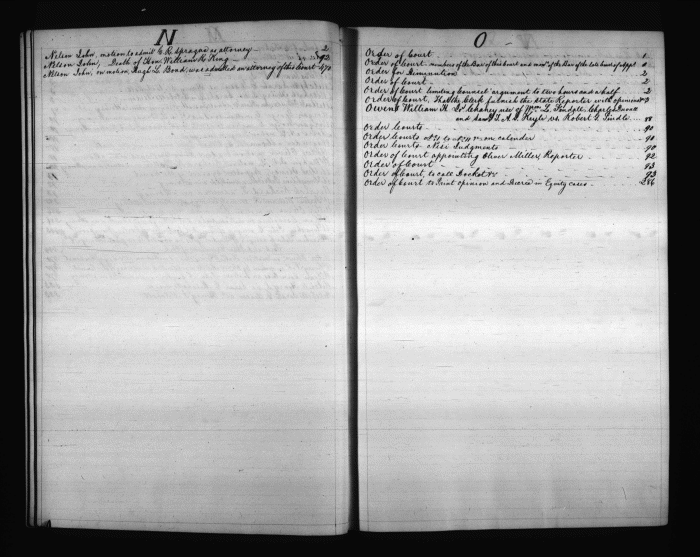 N
Nelson John, motion to admit E. R. Sprague as attorney 2
Nelson John, Death of Hon. William R. King 92
Nelson John, on motion, Hugh L. Bond, was admitted an attorney of this Court 272
O
Order of Court 1
Order of Court members of the Bar of this Court and most of the Bar of the late Court of Appls 1
Order for 2
Order of Court 2
Order of Court limiting Counsel argument to two hours and a half 2
Order of Court, that the Clerk furnish the State Reporter with opinions 3
Owens William H. use of Wm. L. Tindall, Charles
and A. S. vs. Robert G. Tindle 88
Order Courts 90
Order Courts No. 71 to on calender 90
Order Courts Nisi Judgments 90
Order of Court appointing Oliver Miller, Reporter 92
Order of Court 93
Order of Court, to call Docket &c 93
Order of Court to Print Opinion and Decree in Equity cases 286